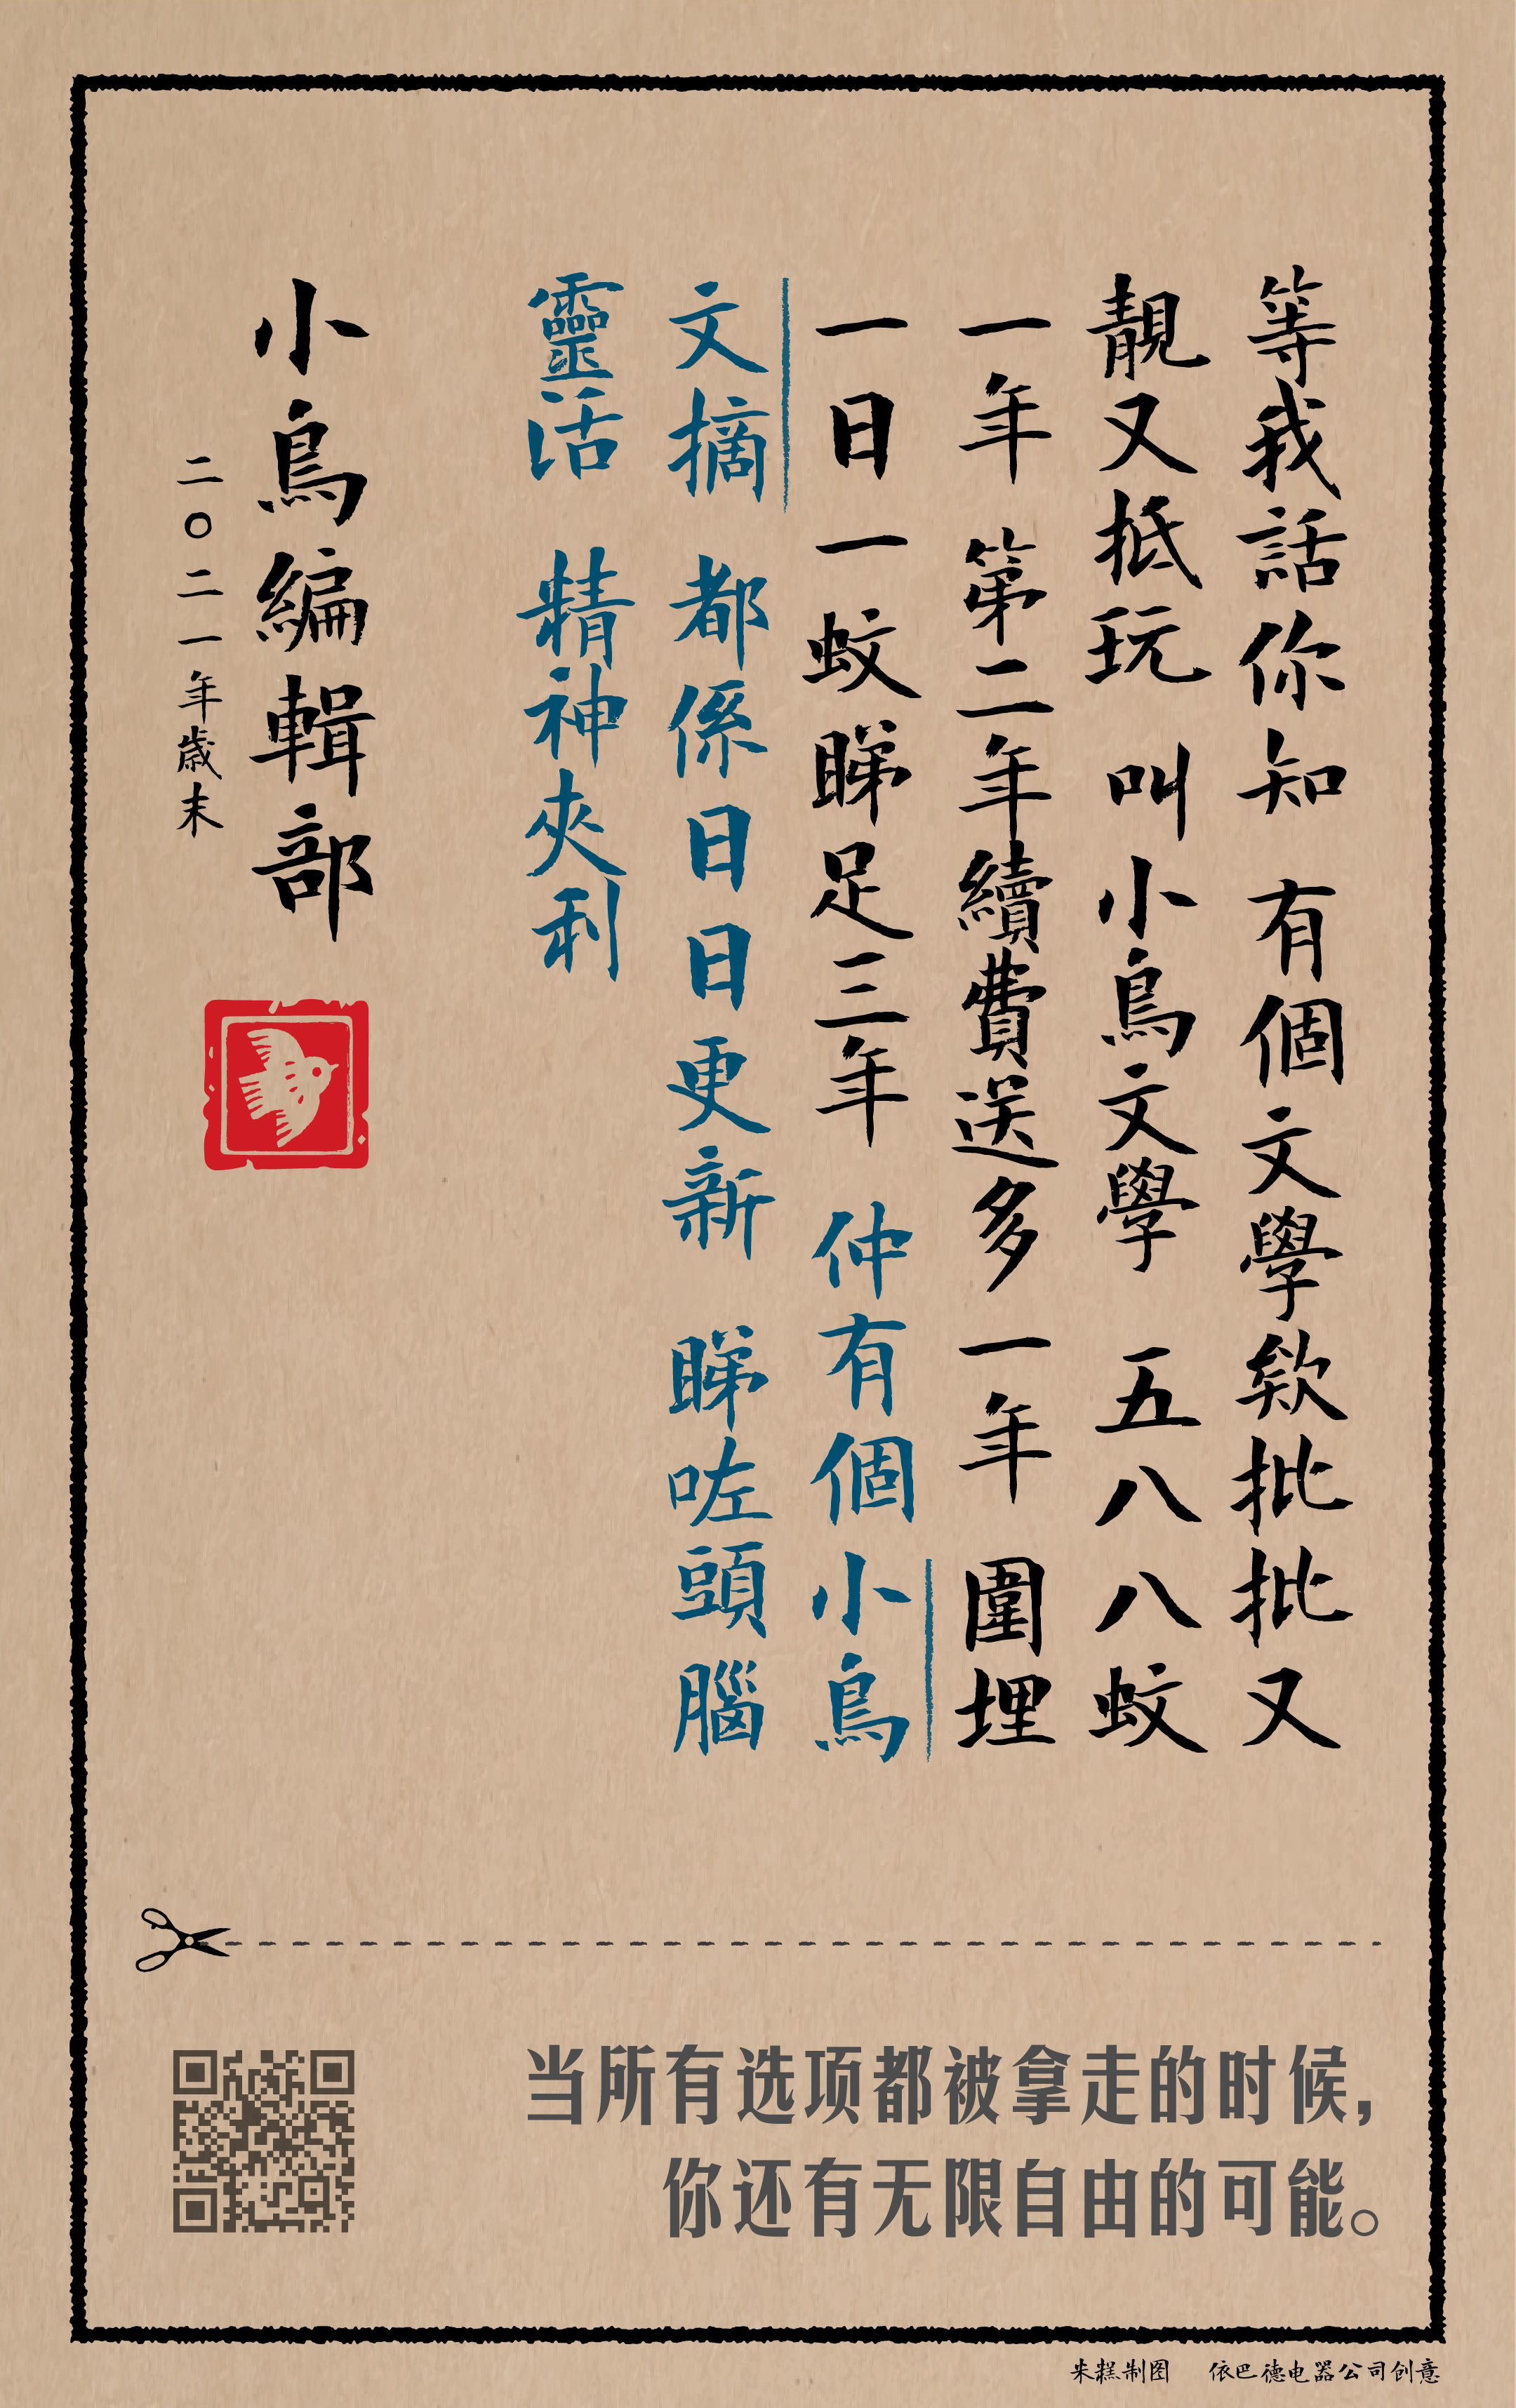 等我話你知 有個文學欸批批又
靚又抵玩 叫小鳥文學 五八八蚊
一年 第二年續費送多一年 圍埋
一日一蚊睇足三年 仲有個小鳥
文摘 都係日日更新 睇咗頭腦
靈活 精神夾利
小鳥編輯部
二〇二一年歲末
当所有选项都被拿走的时候，
你还有无限自由的可能。
朱糕制图 依巴德电器公司创意